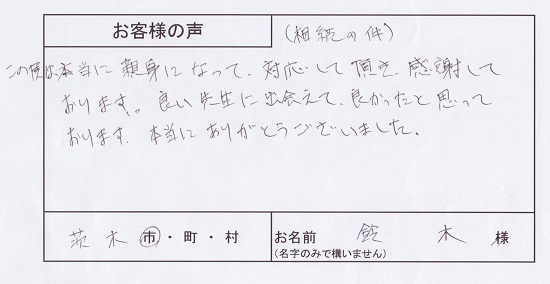 お客様の声
(相続の件)
この度は本当に親身になって、対応して頂き、感謝して
おります。良い先生に出会えて、良かったと思って
おります。本当にありがとうございました。
茨木 市・町・村
お名前 鈴木 様
(名字のみで構いません)